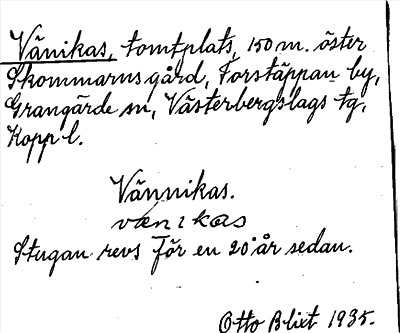 Vänikas, tomtplats, 150 m. öster
Skommarns gård, Forstäppan by,
Grangärde sn, Västerbergslags tg,
Kopp l.
Vännikas.
vænikas
Stugan revs för en 20 år sedan.
Otto Blixt 1935.